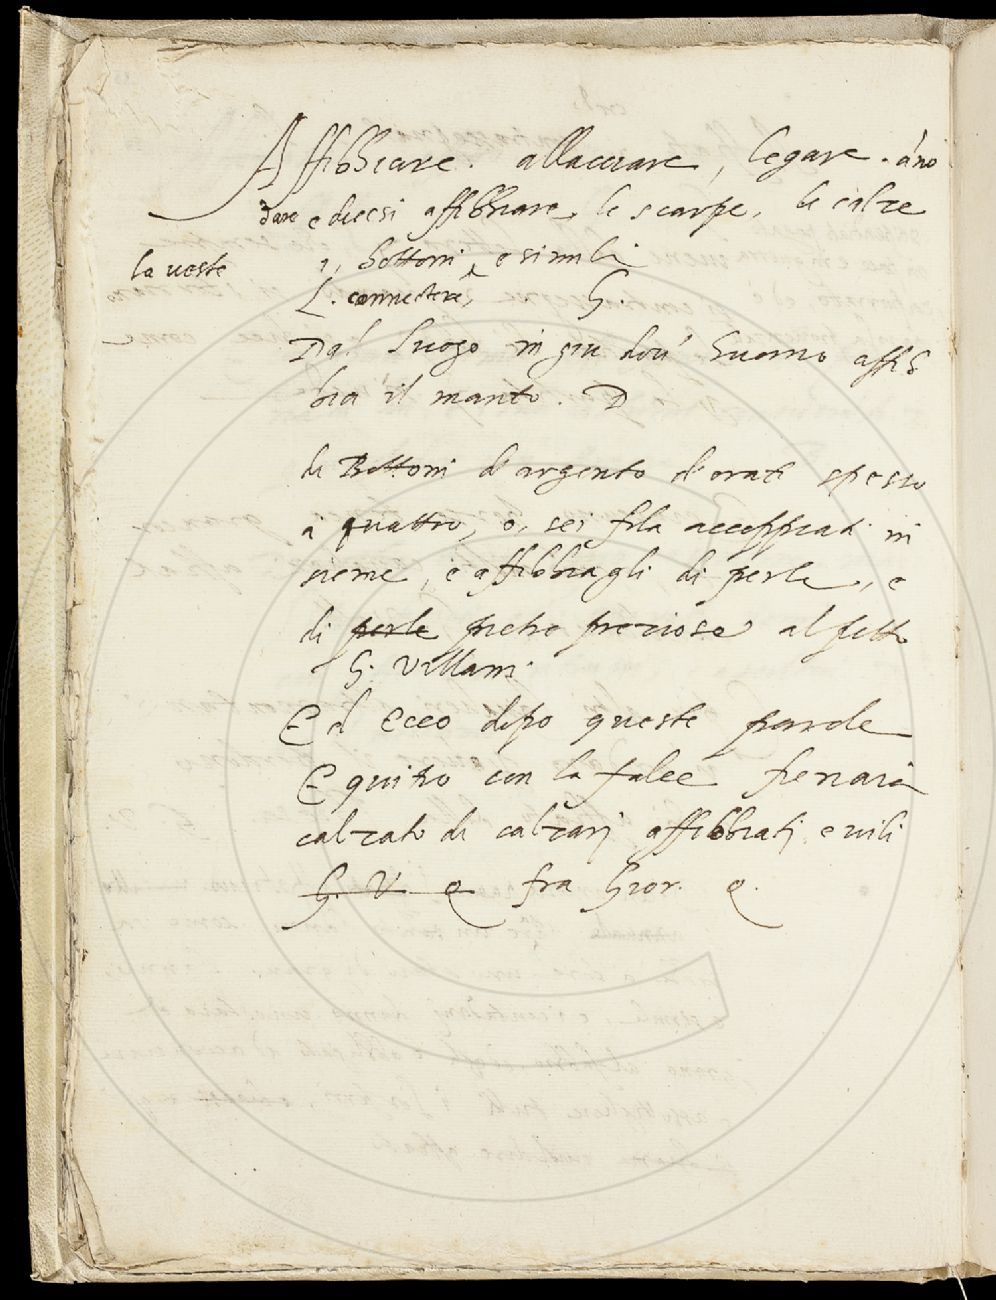 Affibbiare. allacciare, legare. anno
dare e dicesi affibbiare le scarpe, le calze
la veste
i, bottoni e simili
L. connectere, G.
Dal luogo in giu dou' huomo affib
bia il manto. D
di Bottoni d'argento d'orati spesso
a quattro, o, sei fila accoppiati in
sieme, e affibbiagli di perle, e
di perle pietre preziose al petto
G. Villani
Ed Ecco dopo queste parole
E quiuo con la falce fienaia
calzato di calzari affibbiati e uili
G. V. e fra Gior. e.